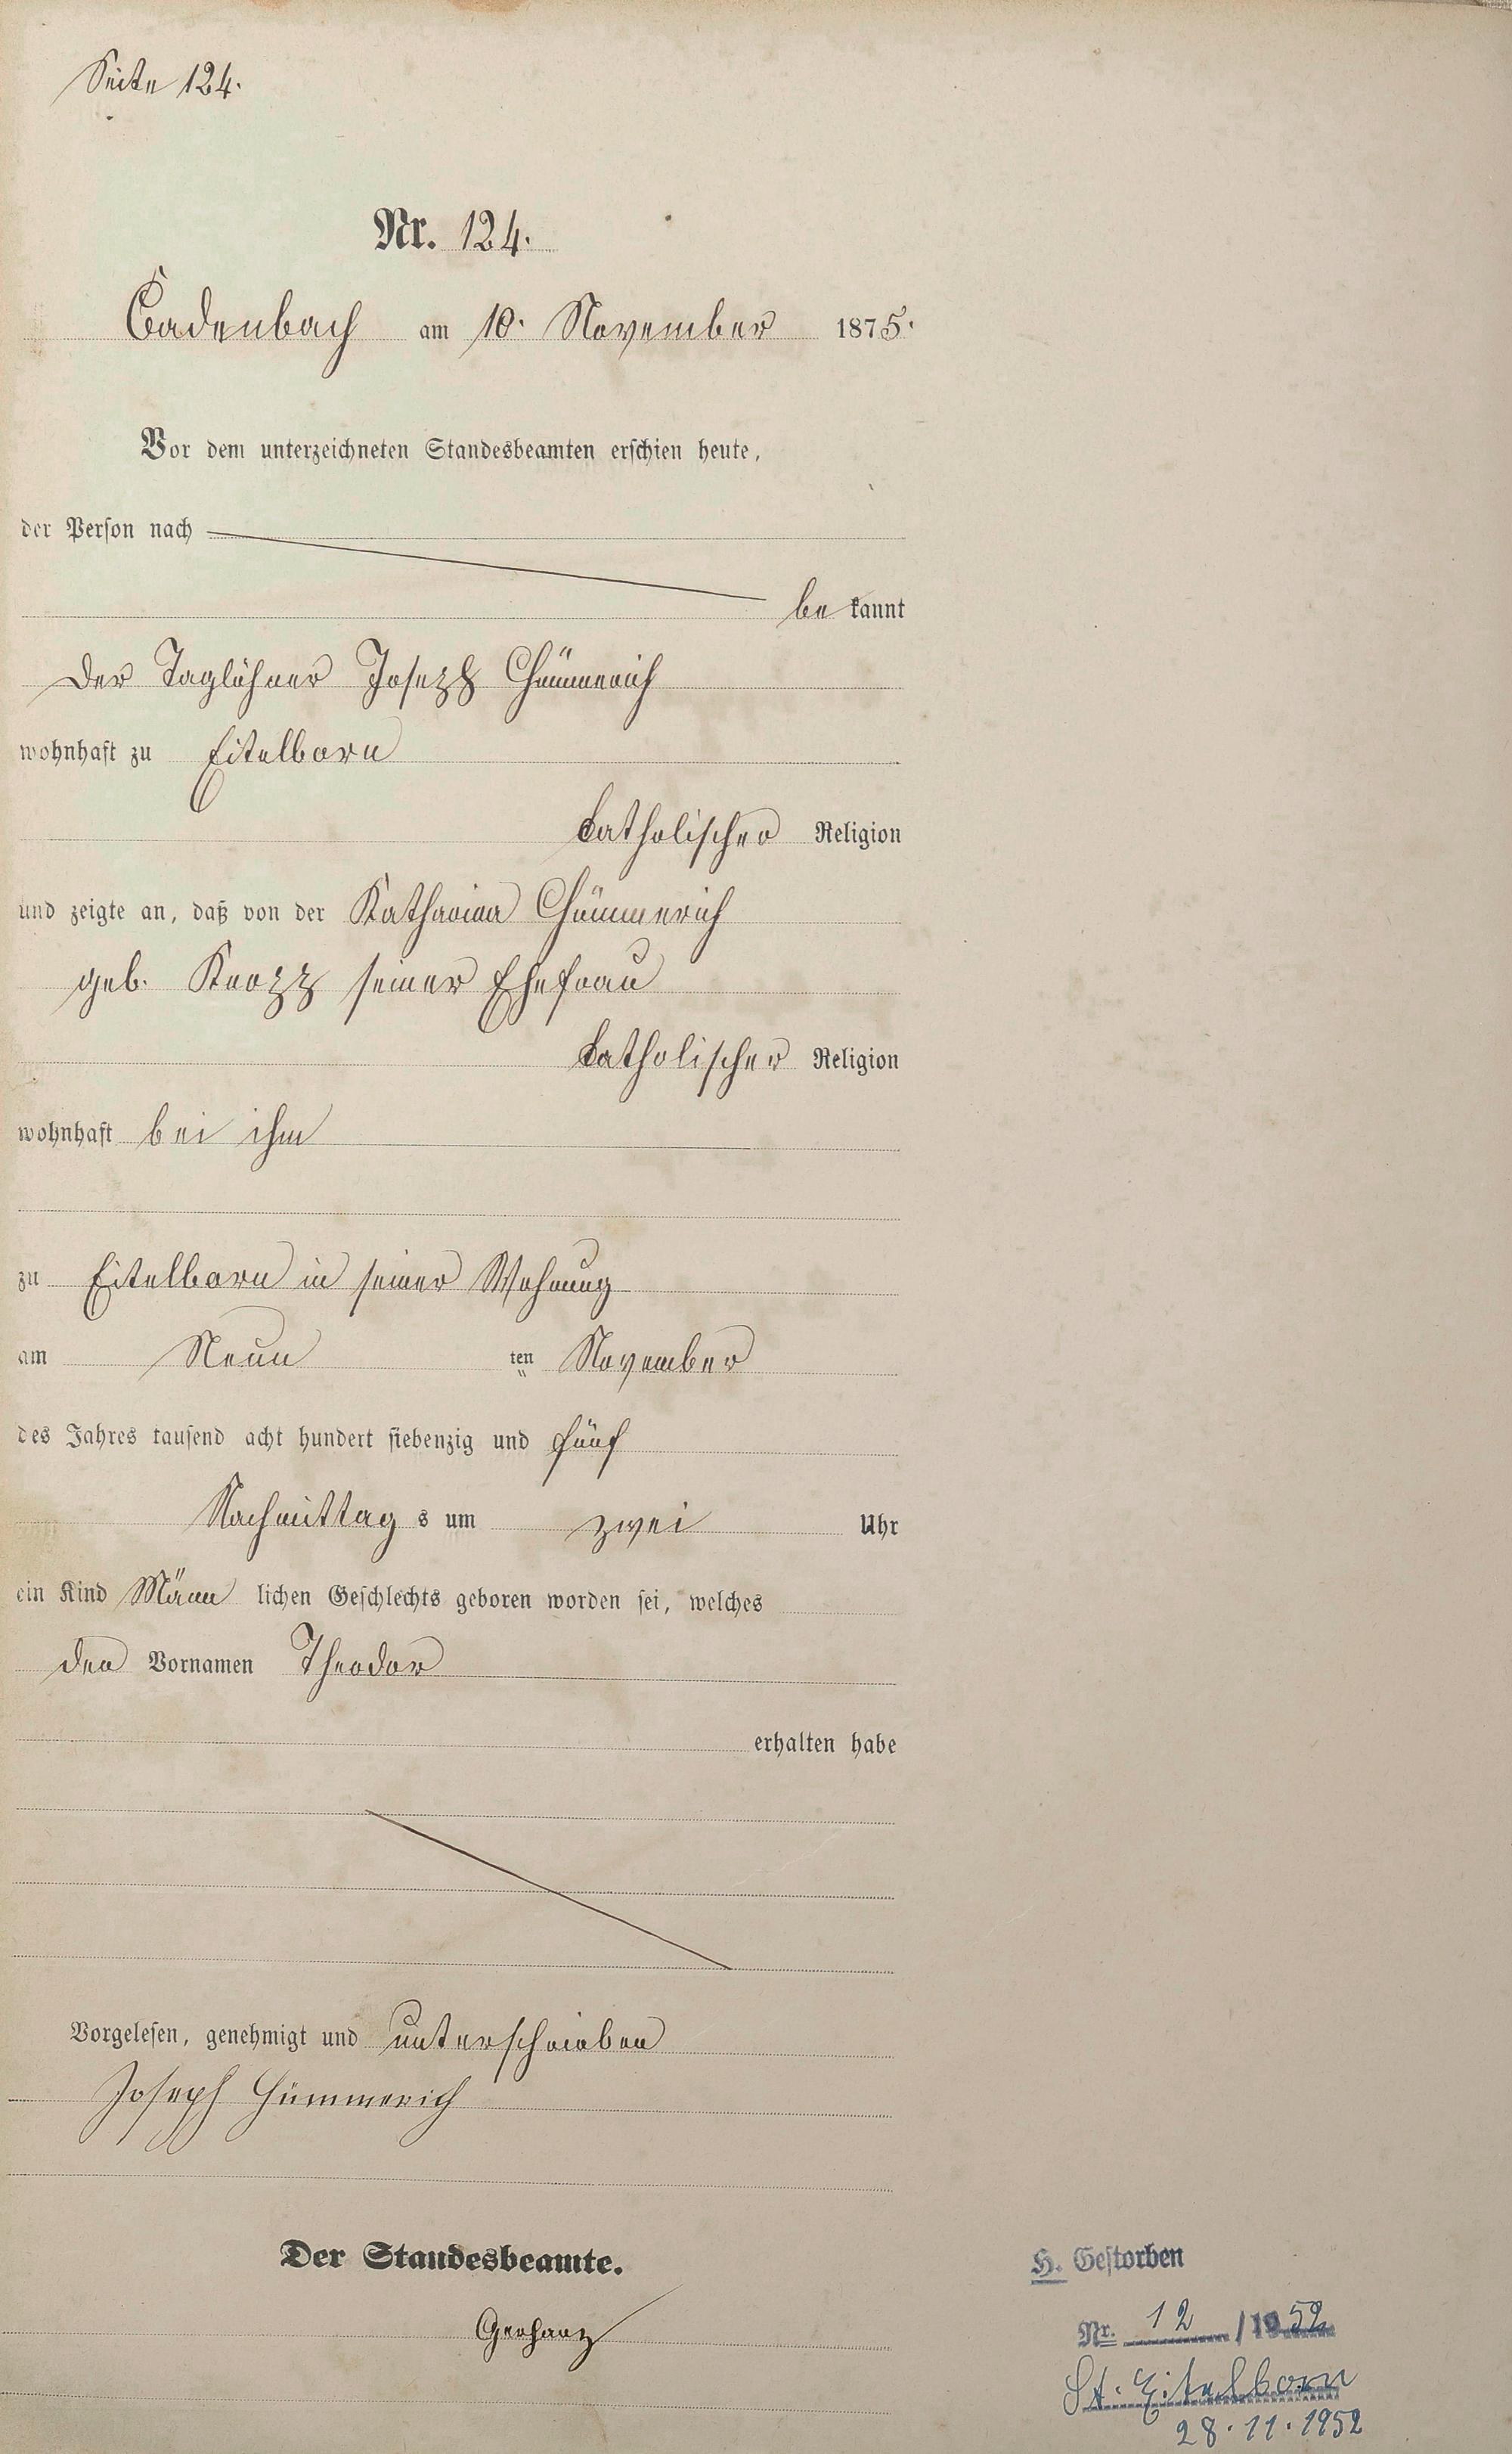 Seite 124.
Nr. 124.
Cadenbach am 10. November 1875.
Vor dem unterzeichneten Standesbeamten erschien heute,
der Person nach
be kannt
der Taglöhner Joseph Hümmerich
wohnhaft zu Eitelborn
katholischer Religion
und zeigte an, daß von der Katharina Hümmerich
geb. Knopp seiner Ehefrau
katholischer Religion
wohnhaft bei ihm
zu Eitelborn in seiner Wohnung
am Neun ten November
des Jahres tausend acht hundert siebenzig und fünf
Nachmittag s um zwei Uhr
ein Kind Männ lichen Geschlechts geboren worden sei, welches
den Vornamen Theodor
erhalten habe
Vorgelesen, genehmigt und unterschrieben
Joseph Hümmerich
Der Standesbeamte.
Gerhanz
H. Gestorben
Nr. 12 /1952
St. Eitelborn
28.11.1952